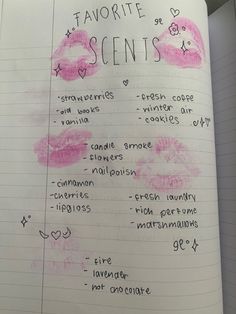 FAVORITE
SCENTS
- strawberries
- old books
- vanilla
- fresh coffe
- winter air
- cookies
- candle smoke
- flowers
- nailpolish
- cinnamon
- cherries
- lipgloss
- fresh laundry
- rich perfume
- marshmallows
- fire
- lavender
- hot chocolate